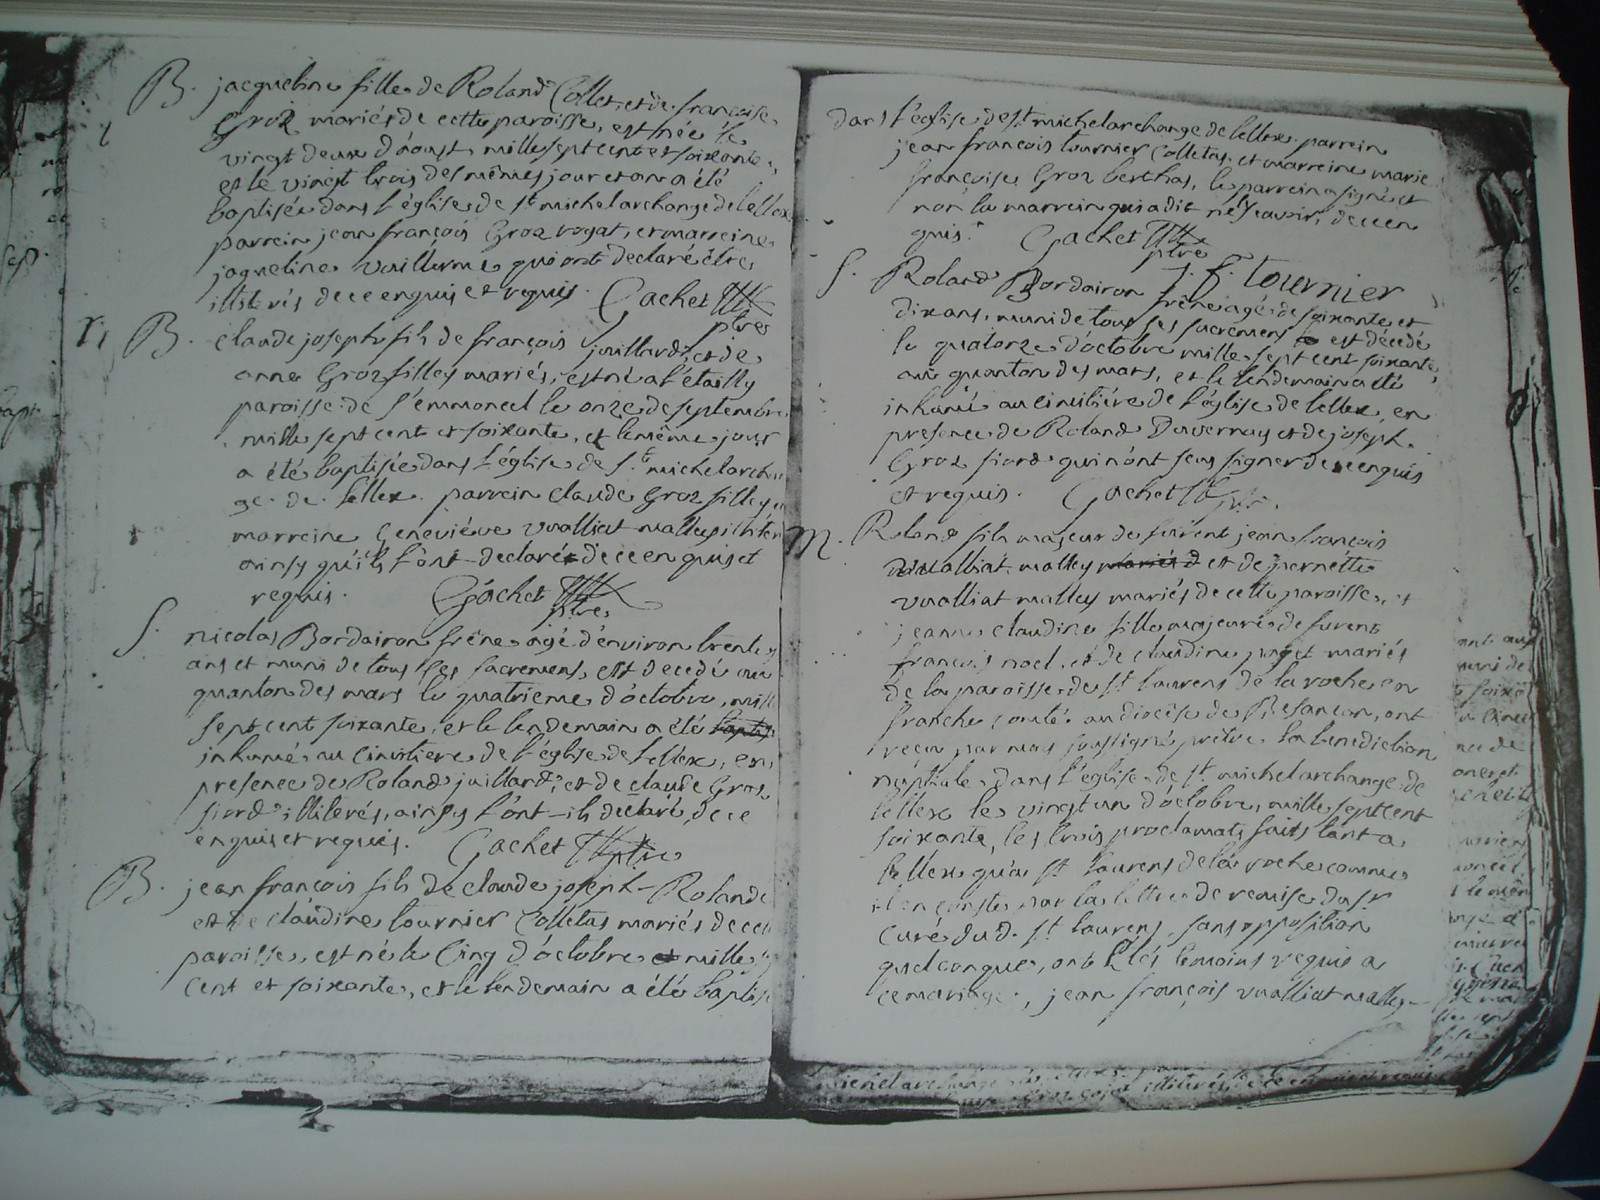 B. jacqueline fille de Roland Collet, et de françoise
Groz mariés de cette paroisse, est née le
vingt deux d'aoust mille sept cent et soixante,
et le vingt trois des mêmes jour et an a été
baptisée dans l'église de St michel archange de lellex
parrein jean françois Groz rogat, et marreine
jaqueline vuillermé qui ont declaré être
illiterés de ce enquis et requis. Gachet
ptre
B. claude joseph fils de françois juillard, et de
anne Groz filley mariés, est né a l'étailly
paroisse de s'emmoncel le onze de septembre
mille sept cent et soixante, et le même jour
a été baptisée dans l'église de St michel archan
ge de lellex. parrein claude Groz filley
marreine Geneviéve vualliat malley illitérés
ainsy qu'ils l'ont declaré de ce enquis et
requis. Gachet
ptre
S. nicolas Bordairon frêne agé d'environ trente
ans et muni de tous les sacremens, est decedé au
quanton des mars le quatrieme d'octobre, mill
sept cent soixante, et le lendemain a été baptisé
inhumé au cimitiere de l'église de lellex, en
presence de Roland juillard, et de claude Groz
fiord illiterés, ainsy l'ont-ils déclaré, de ce
enquis et requis. Gachet ptre
B. jean françois fils de claude joseph Rolande
et de claudine tournier Colletas mariés de cett
paroisse, est né le cinq d'octobre et mille s
cent et soixante, et le lendemain a été baptisé
dans l'église de St michel archange de lellex. parrein
jean françois tournier Colletas, et marreine marie
françoise Groz berthas, le parrein a signé et
non la marrein qui a dit ne sçavoir, de ce en
quis. Gachet
ptre
J. F. tournier
S. Roland Bordairon frêne agé de soixante et
dix ans, muni de tous les sacremens est décedé
le quatorze d'octobre mille sept cent soixante,
au quanton des mars, et le lendemain a été
inhumé au cimitiére de l'église de lellex, en
presence de Roland Duvernay et de joseph
Groz fiord qui n'ont seus signer de ce enquis
et requis. Gachet ptre.
M. Roland fils majeur de furent jean françois
vualliat malley mariés d et de pernette
vualliat malley mariés de cette paroisse, et
jeanne claudine fille majeure de furent
françois noel, et de claudine junet mariés
de la paroisse de St laurens de la roche en
franche comté au diocèse de Besançon, ont
reçu par nous soussigné prêtre la benediction
nuptiale dans l'église de St michel archange de
lellex le vingt un d'octobre, mille sept cent
soixante, les trois proclamats faits tant a
lellex qu'a St laurens de la roche comme
il en conste par la lettre de remise du sr
curé dud. St laurens, sans opposition
quelconque, ont étés temoins requis a
ce mariage, jean françois vualliat malley